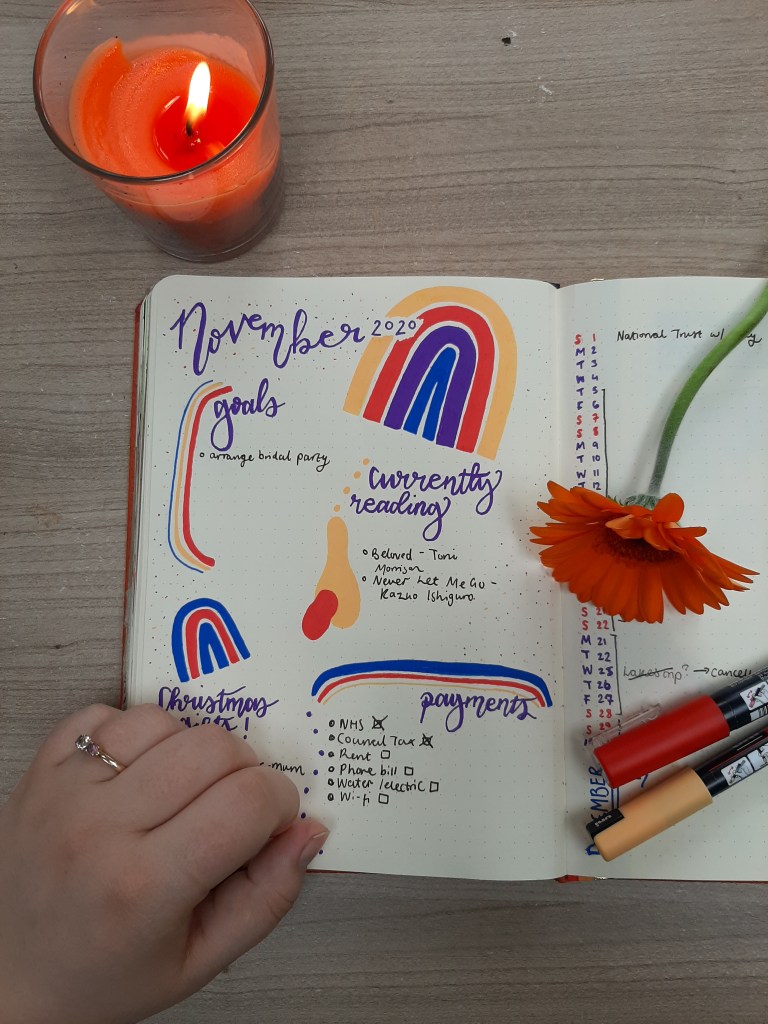 November 2020
goals
arrange bridal party
currently
reading
Beloved - Toni
Morrison
Never Let Me Go -
Kazuo Ishiguro
Christmas
gifts!
mum
payments
NHS
Council Tax
Rent
Phone bill
Water/electric
Wi-fi
S 1 National Trust w/
M 2
T 3
W 4
T 5
F 6
S 7
S 8
M 9
T 10
W 11
T 12
S 22
M 21
T 22
W 25 Lakes trip? → cancell
T 26
F 27
S 28
S 29